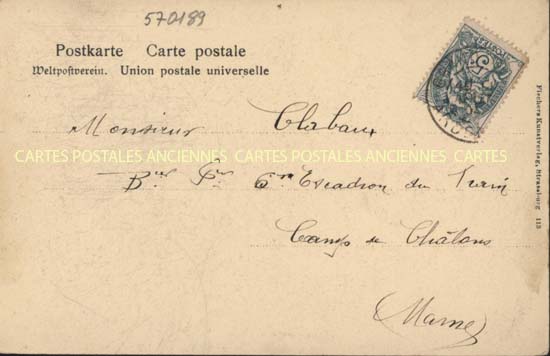 570189
Postkarte Carte postale
Weltpostverein. Union postale universelle
Monsieur Clabaux
CARTES POSTALES ANCIENNES CARTES POSTALES ANCIENNES CARTES POSTALES
Escadron du Train
Camp de Châlons
Marne
Fischers Kunstverlag, Strassburg 113